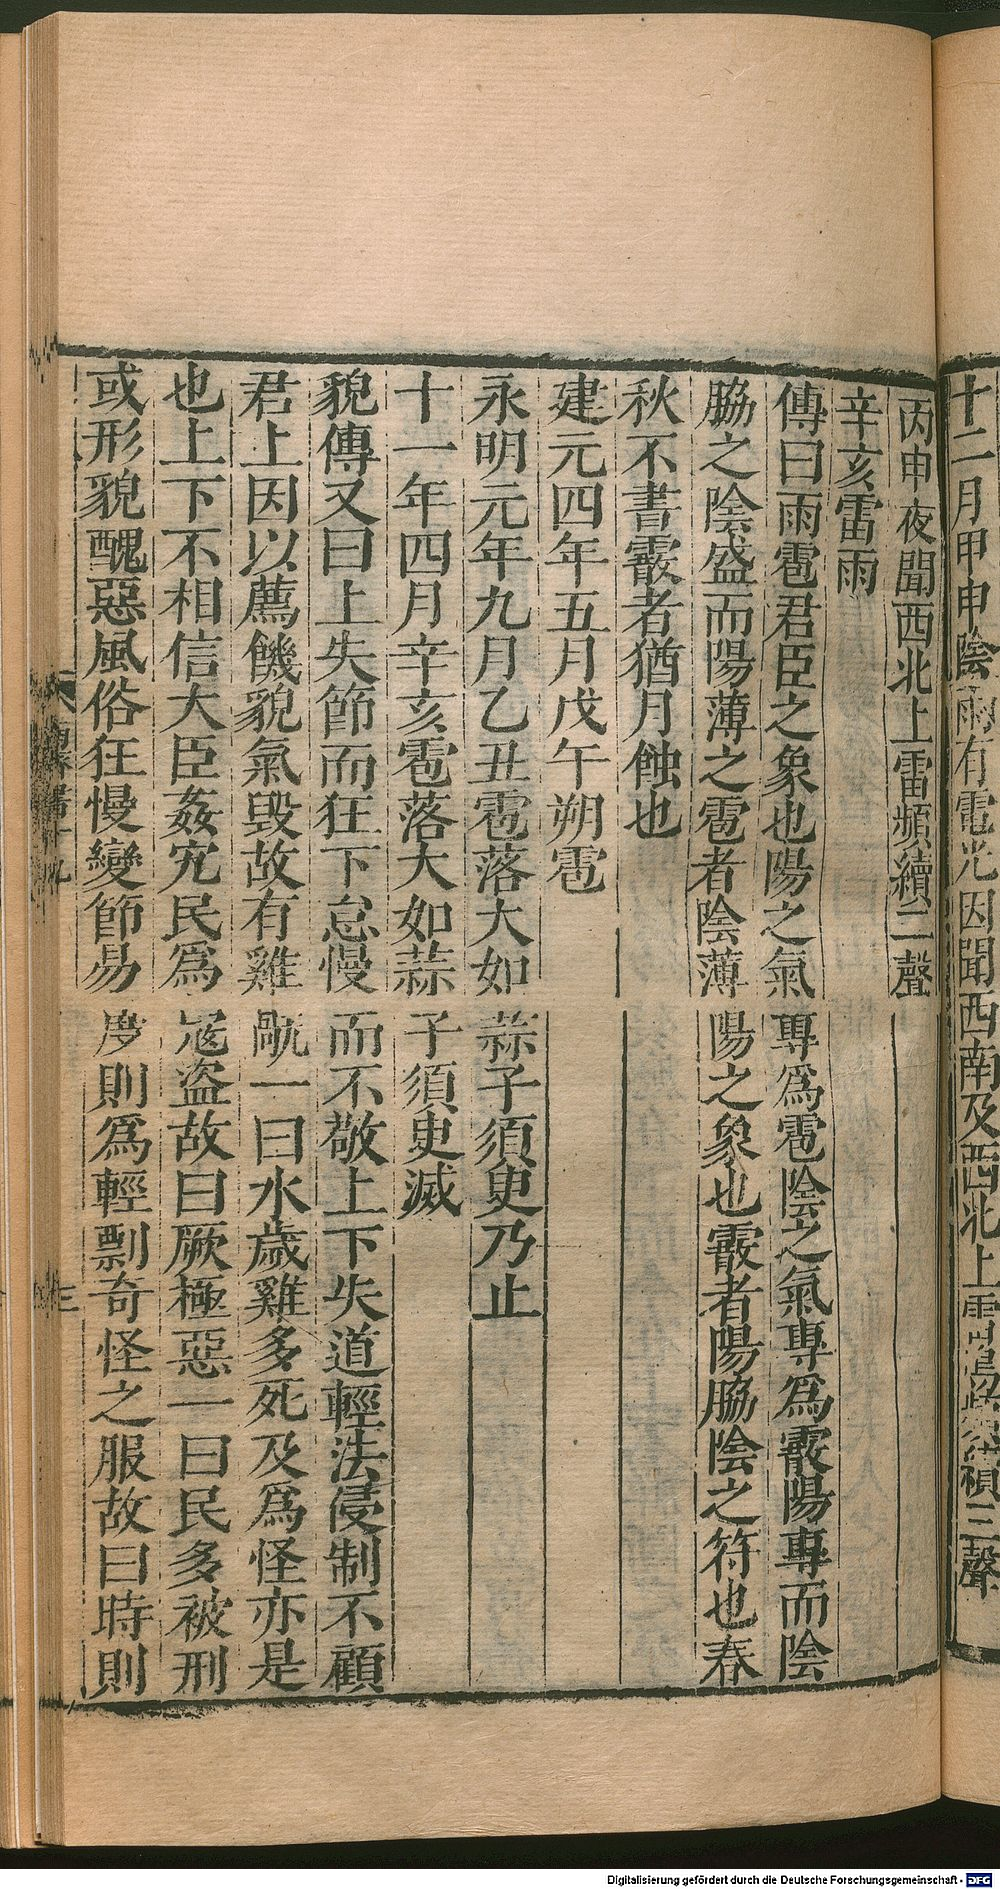 十二月甲申陰雨有電光因聞西南及西北上雷鳴頻續三聲
丙申夜聞西北上雷頻續二聲
辛亥雷雨
傳曰雨雹君臣之象也陽之氣專爲雹陰之氣專爲霰陽專而陰
脇之陰盛而陽薄之雹者陰薄陽之象也霰者陽脇陰之符也春
秋不書霰者猶月蝕也
建元四年五月戊午朔雹
永明元年九月乙丑雹落大如蒜子須臾乃止
十一年四月辛亥雹落大如蒜子須臾滅
貌傳又曰上失節而狂下怠慢而不敬上下失道輕法侵制不顧
君上因以薦饑貌氣毀故有雞𤯝一曰水歲雞多死及爲怪亦是
也上下不相信大臣姦宄民爲寇盜故曰厥極惡一曰民多被刑
或形貌醜惡風俗狂慢變節易度則爲輕剽奇怪之服故曰時則
南齊書十九
三
Digitalisierung gefördert durch die Deutsche Forschungsgemeinschaft - DFG